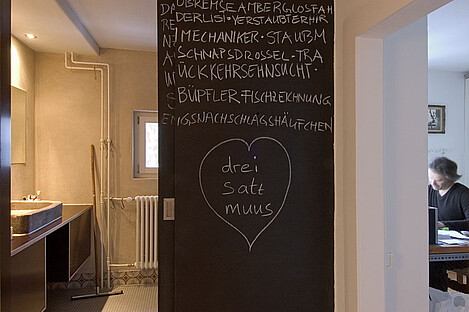 ÜBSREMSE AMBERGLOSTAH
DERLISI · VERSTAUBTERHIR
MECHANIKER · STAUBM
SCHNAPSDROSSEL · TRA
ÜCKKEHRSEHNSUCHT ·
BÜPFLER FISCHZEICHNUNG
ENGSNACHSCHLAGSHÄUFCHEN
drei
satt
muus